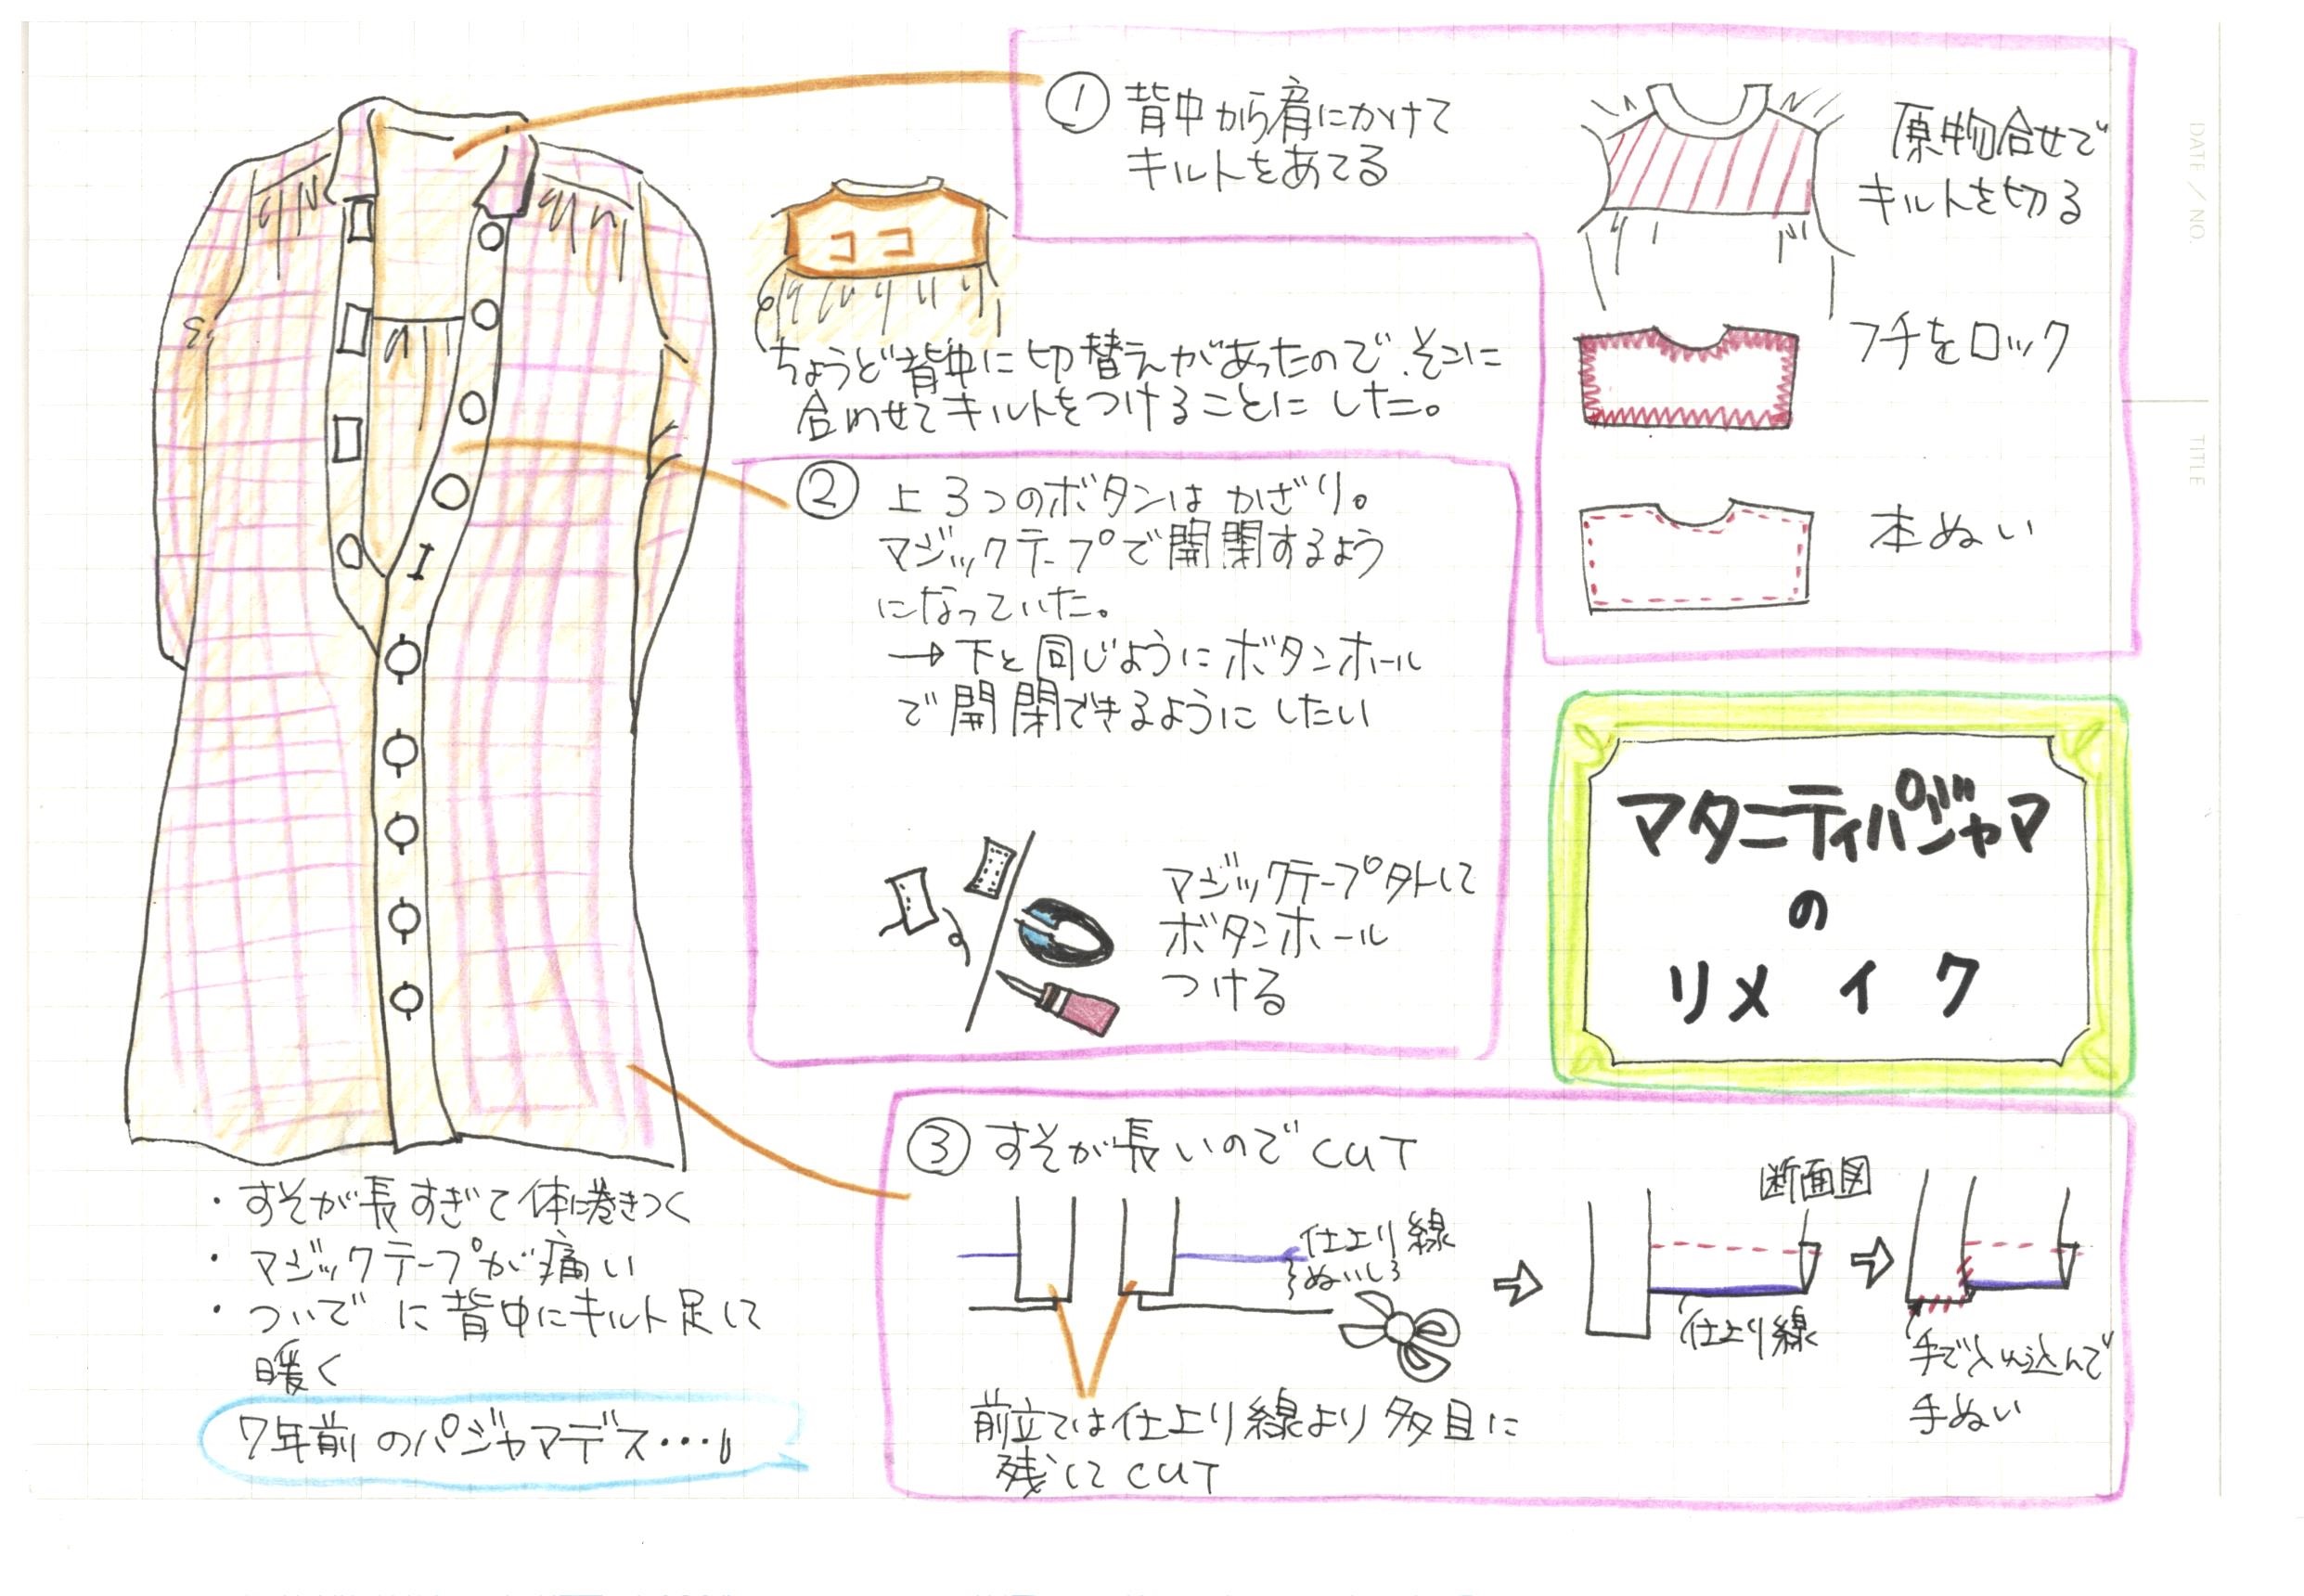 ① 背中から肩にかけて
キルトをあてる
原物合せで
キルトを切る
フチをロック
本ぬい
ちょうど背中に切替えがあったので、そこに
合わせてキルトをつけることにした。
② 上3つのボタンはかざり。
マジックテープで開閉するよう
になっていた。
→下と同じようにボタンホール
で開閉できるようにしたい
マジックテープ外して
ボタンホール
つける
マタニティパジャマ
の
リメイク
③ すそが長いのでCUT
仕上り線
ぬいしろ
前立ては仕上り線より多目に
残してCUT
断面図
仕上り線
手で入れ込んで
手ぬい
・すそが長すぎて体に巻きつく
・マジックテープが痛い
・ついでに背中にキルト足して
暖く
7年前のパジャマデス…
DATE / NO.
TITLE